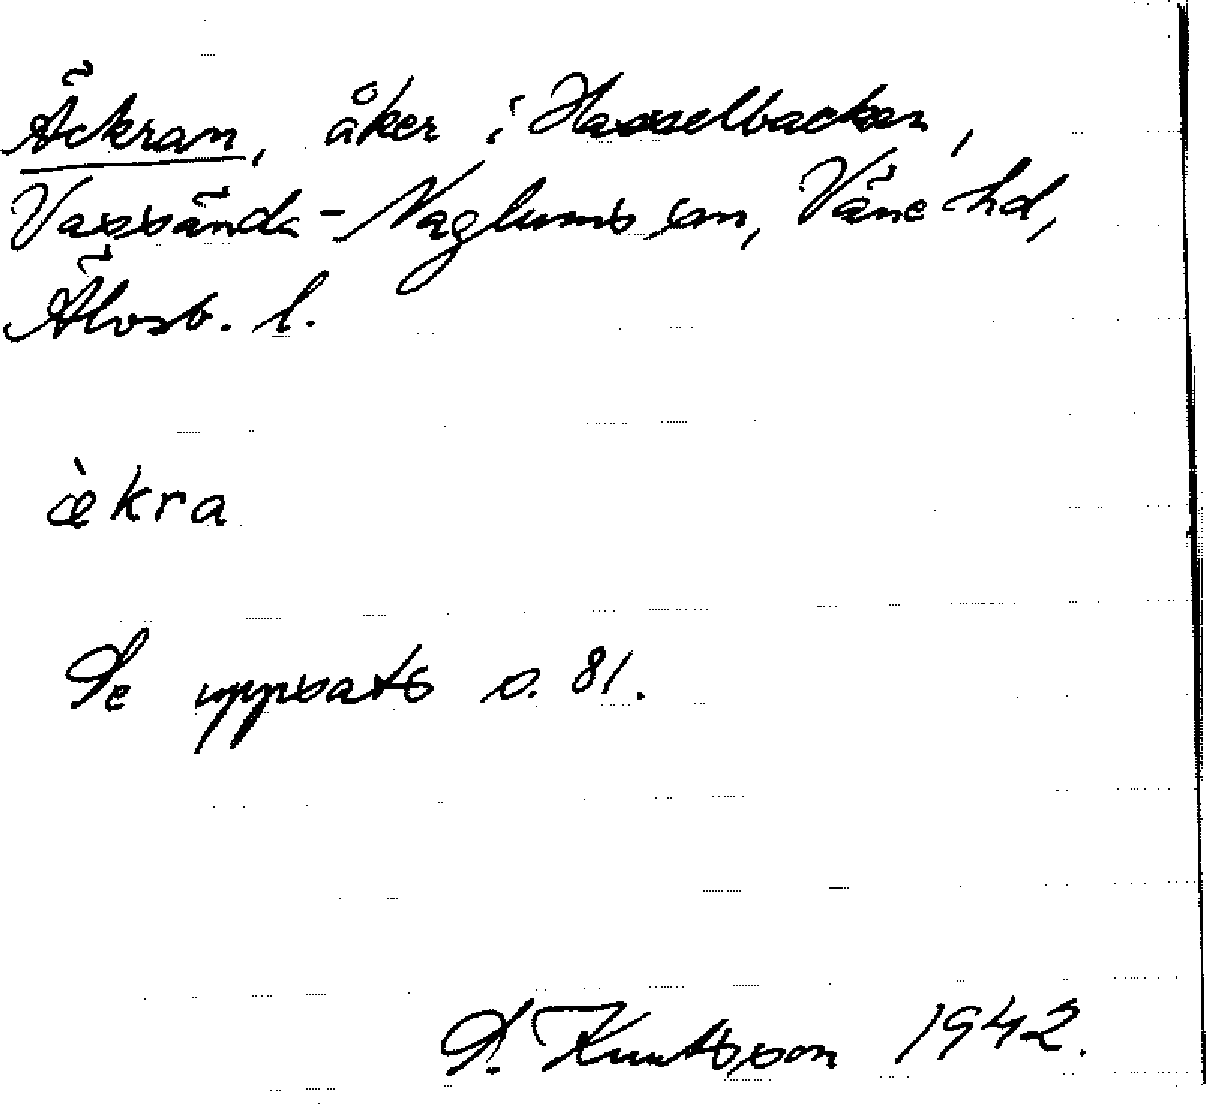 Äckran, åker i Hasselbacken,
Vassända-Naglums sn, Väne hd,
Älvsb. l.
æ̀kra
Se uppsats s. 81.
P. Knutsson 1942.